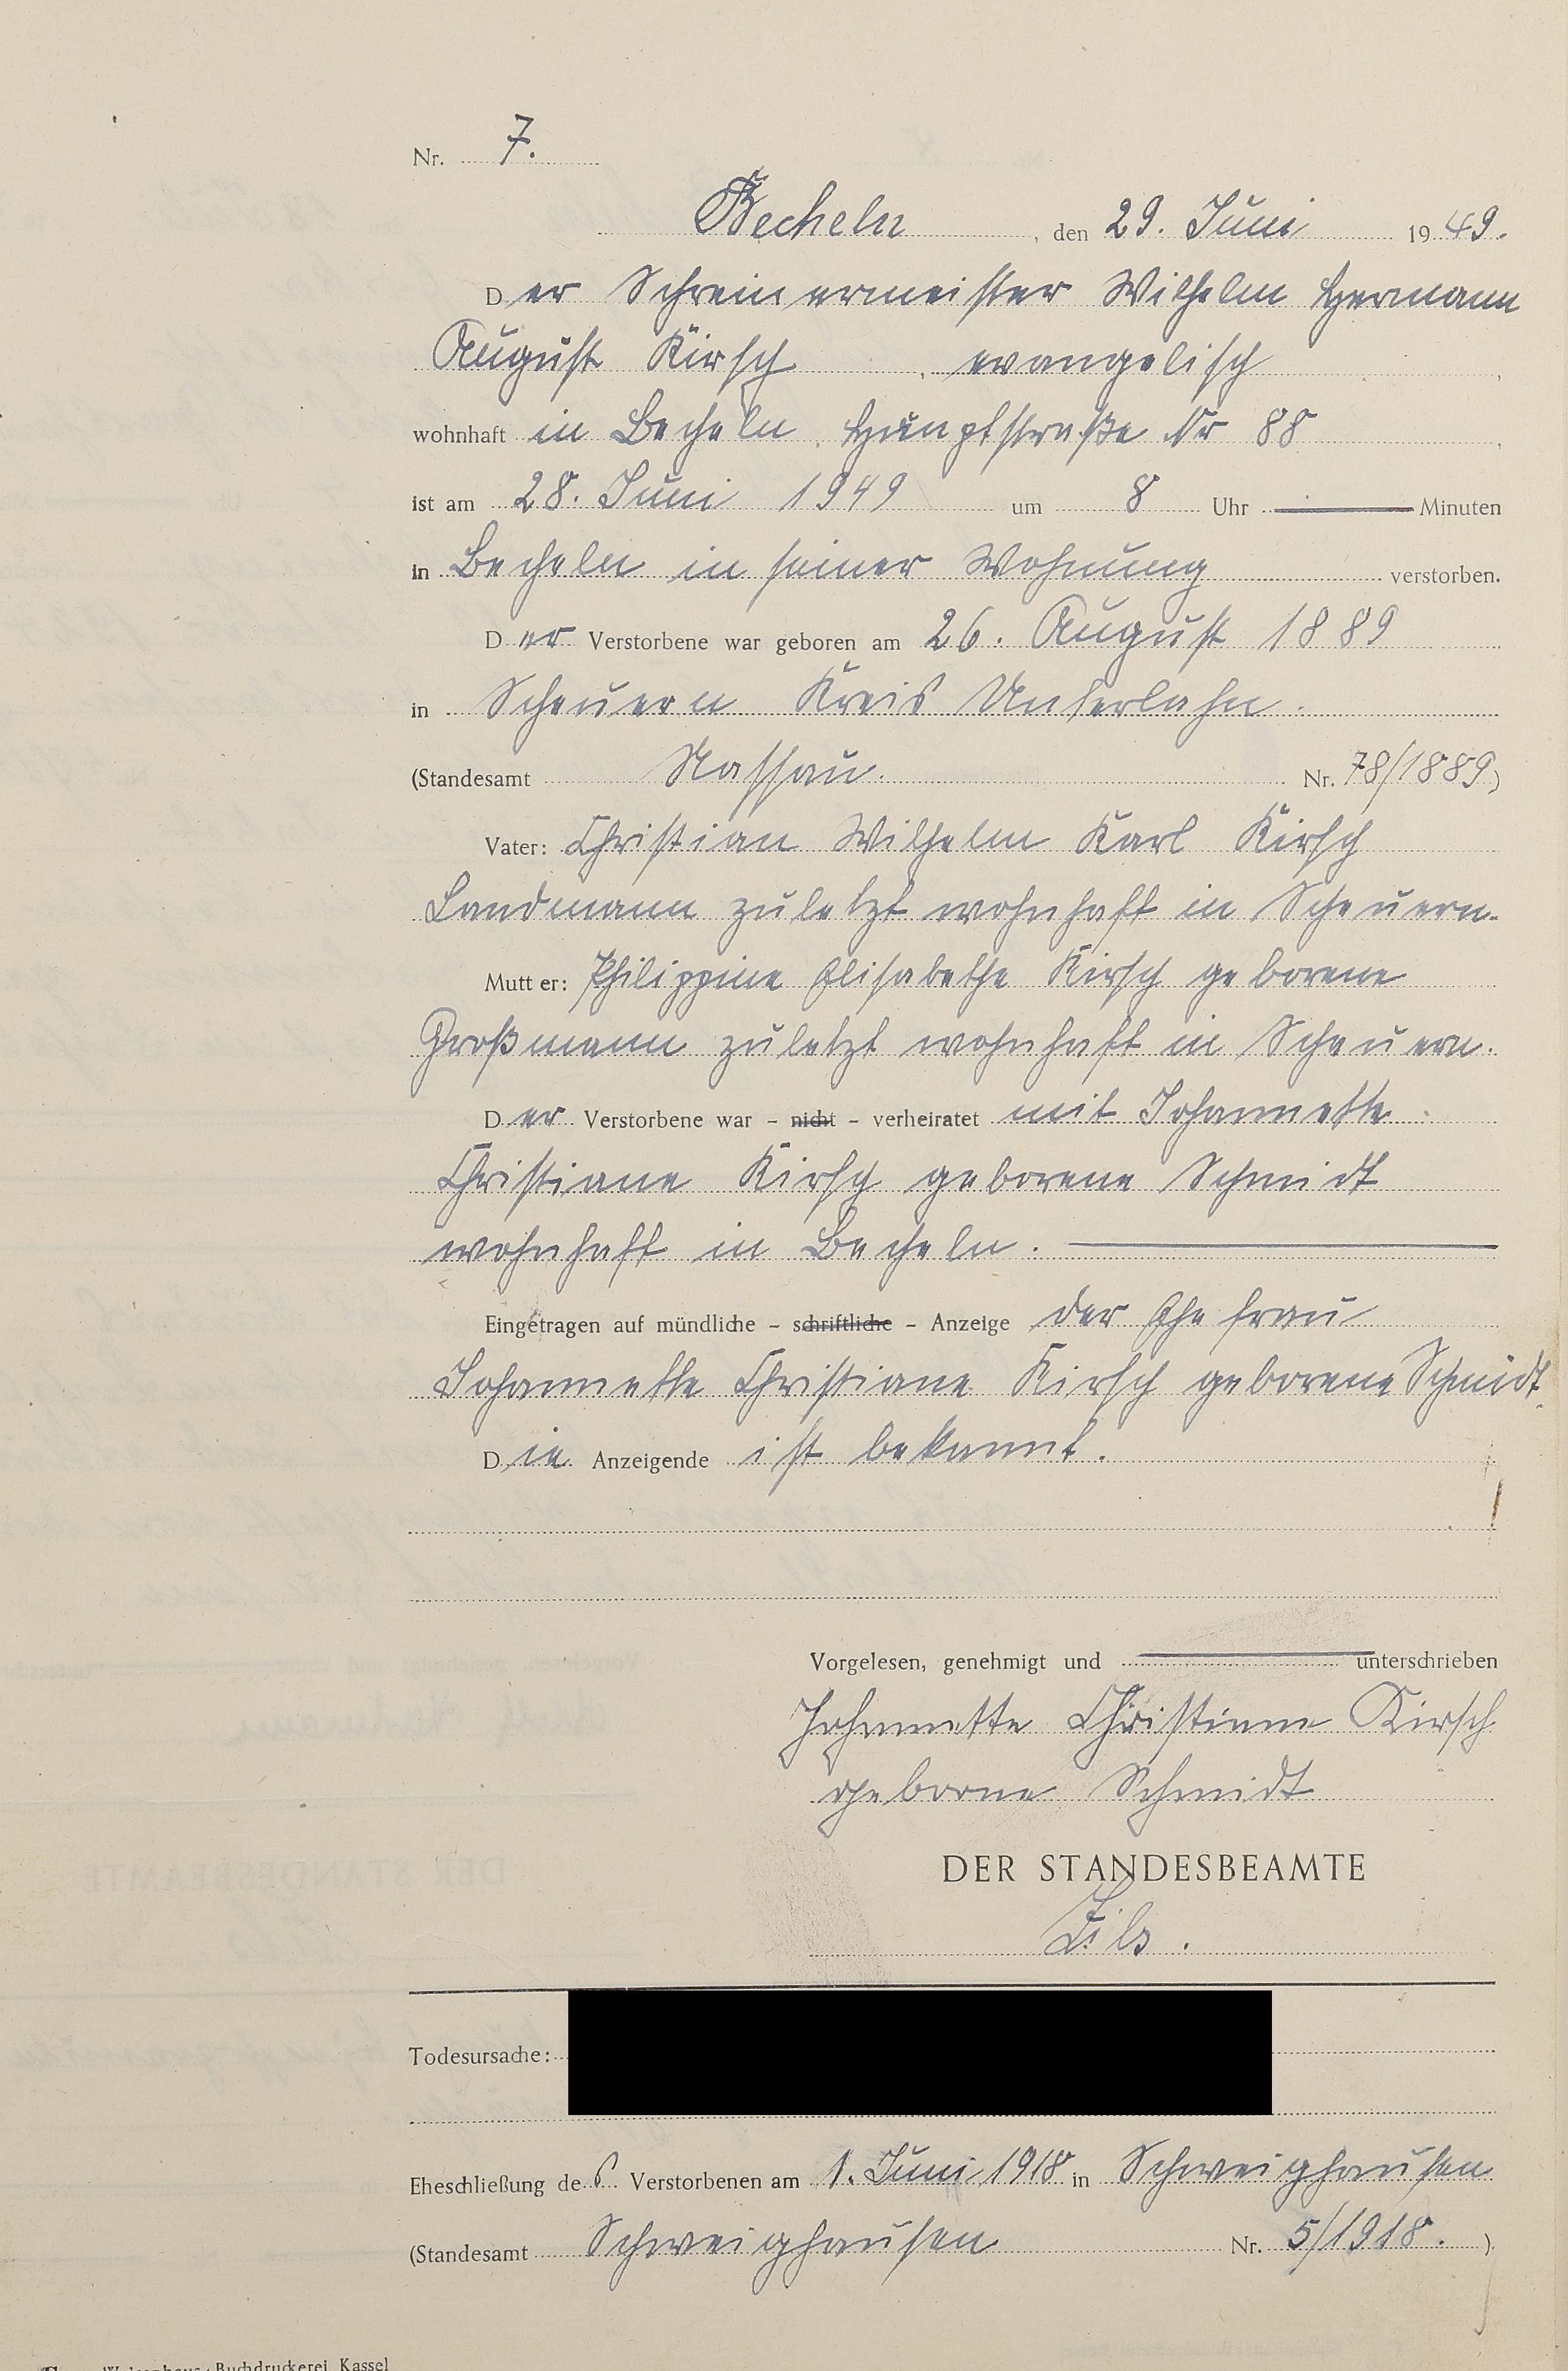 Nr. 7.
Becheln, den 29. Juni 1949.
Der Schreinermeister Wilhelm Hermann
August Kirsch, evangelisch,
wohnhaft in Becheln, Hauptstraße Nr 88,
ist am 28. Juni 1949 um 8 Uhr — Minuten
in Becheln in seiner Wohnung verstorben.
Der Verstorbene war geboren am 26. August 1889
in Scheuern Kreis Unterlahn.
(Standesamt Nassau. Nr. 78/1889)
Vater: Christian Wilhelm Karl Kirsch
Landmann zuletzt wohnhaft in Scheuern.
Mutter: Philippine Elisabethe Kirsch geborene
Großmann zuletzt wohnhaft in Scheuern.
Der Verstorbene war – nicht – verheiratet mit Johannette
Christiane Kirsch geborene Schmidt
wohnhaft in Becheln. —
Eingetragen auf mündliche – schriftliche – Anzeige der Ehefrau
Johannette Christiane Kirsch geborene Schmidt.
Die Anzeigende ist bekannt.
Vorgelesen, genehmigt und — unterschrieben
Johannette Christiane Kirsch
geborne Schmidt
DER STANDESBEAMTE
Zils.
Todesursache:
Eheschließung des Verstorbenen am 1. Juni 1918 in Schweighausen
(Standesamt Schweighausen Nr. 5/1918.)
Waisenhaus-Buchdruckerei Kassel